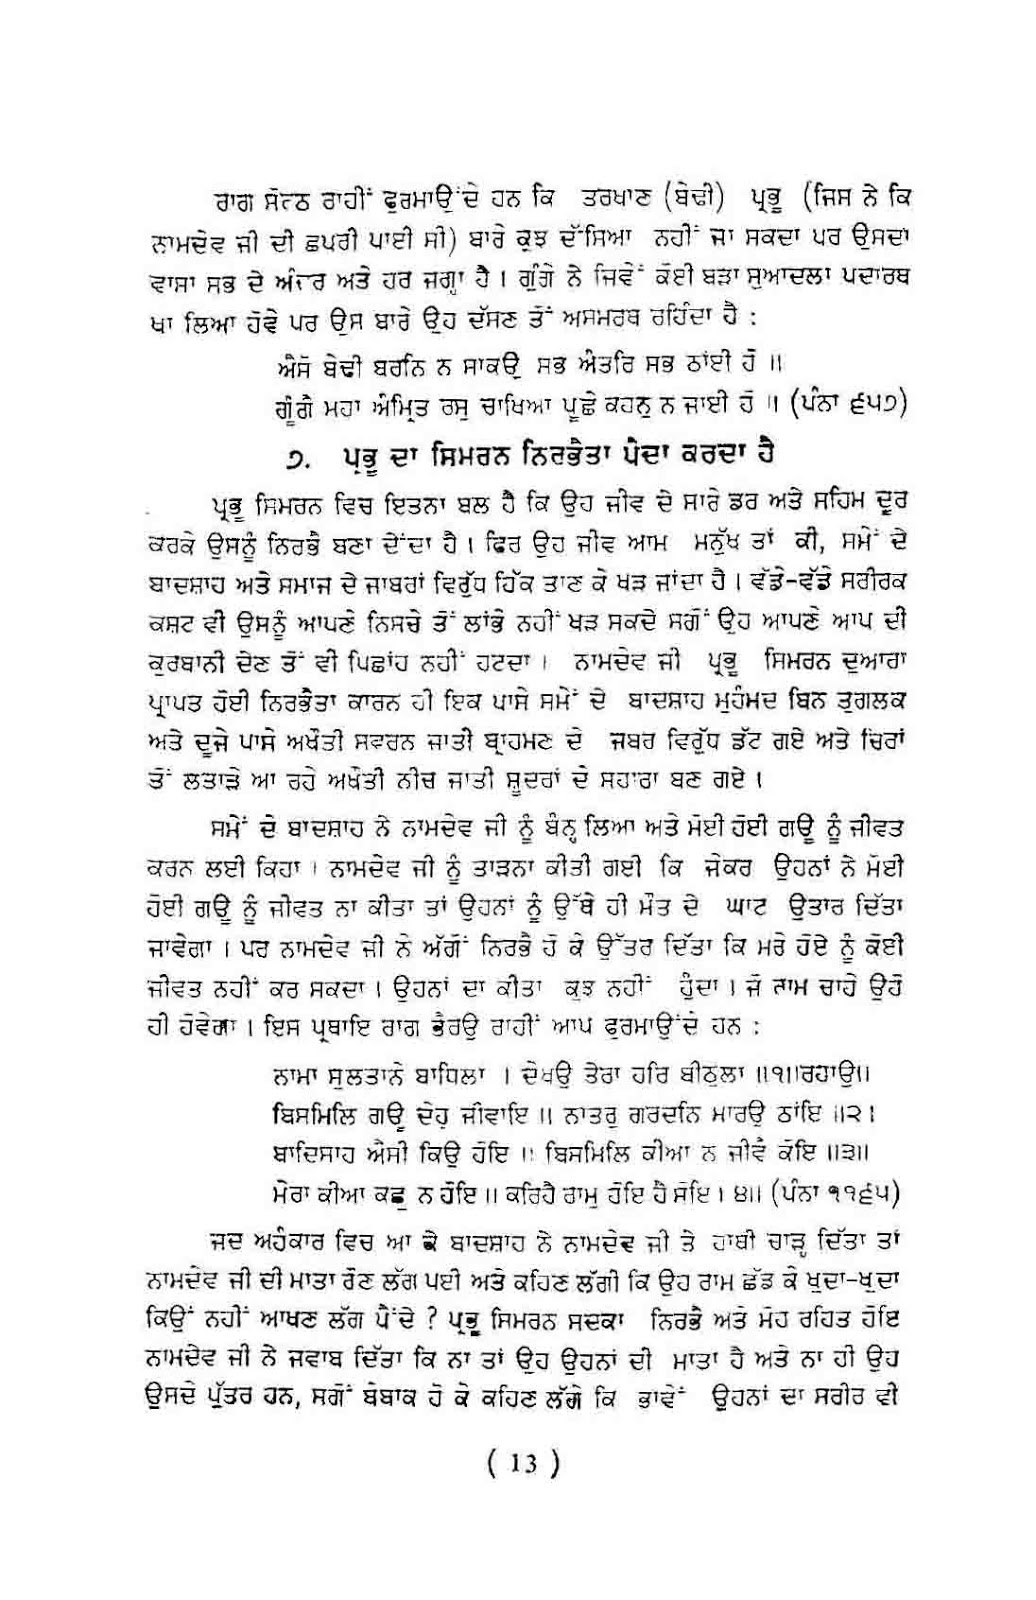 ਰਾਗ ਸੋਰਠ ਰਾਹੀਂ ਫੁਰਮਾਉਂਦੇ ਹਨ ਕਿ ਤਰਖਾਣ (ਬੇਢੀ) ਪ੍ਰਭੂ (ਜਿਸ ਨੇ ਕਿ
ਨਾਮਦੇਵ ਜੀ ਦੀ ਛਪਰੀ ਪਾਈ ਸੀ) ਬਾਰੇ ਕੁਝ ਦੱਸਿਆ ਨਹੀਂ ਜਾ ਸਕਦਾ ਪਰ ਉਸਦਾ
ਵਾਸਾ ਸਭ ਦੇ ਅੰਦਰ ਅਤੇ ਹਰ ਜਗ੍ਹਾ ਹੈ । ਗੁੰਗੇ ਨੇ ਜਿਵੇਂ ਕੋਈ ਬੜਾ ਸੁਆਦਲਾ ਪਦਾਰਥ
ਖਾ ਲਿਆ ਹੋਵੇ ਪਰ ਉਸ ਬਾਰੇ ਉਹ ਦੱਸਣ ਤੋਂ ਅਸਮਰਥ ਰਹਿੰਦਾ ਹੈ :
ਐਸੋ ਬੇਢੀ ਬਰਨਿ ਨ ਸਾਕਉ ਸਭ ਅੰਤਰਿ ਸਭ ਠਾਂਈ ਹੋ ॥
ਗੂੰਗੈ ਮਹਾ ਅੰਮ੍ਰਿਤ ਰਸੁ ਚਾਖਿਆ ਪੂਛੇ ਕਹਨੁ ਨ ਜਾਈ ਹੋ ॥ (ਪੰਨਾ ੬੫੭)
੭. ਪ੍ਰਭੂ ਦਾ ਸਿਮਰਨ ਨਿਰਭੈਤਾ ਪੈਦਾ ਕਰਦਾ ਹੈ
ਪ੍ਰਭੂ ਸਿਮਰਨ ਵਿਚ ਇਤਨਾ ਬਲ ਹੈ ਕਿ ਉਹ ਜੀਵ ਦੇ ਸਾਰੇ ਡਰ ਅਤੇ ਸਹਿਮ ਦੂਰ
ਕਰਕੇ ਉਸਨੂੰ ਨਿਰਭੈ ਬਣਾ ਦੇਂਦਾ ਹੈ । ਫਿਰ ਉਹ ਜੀਵ ਆਮ ਮਨੁੱਖ ਤਾਂ ਕੀ, ਸਮੇਂ ਦੇ
ਬਾਦਸ਼ਾਹ ਅਤੇ ਸਮਾਜ ਦੇ ਜਾਬਰਾਂ ਵਿਰੁੱਧ ਹਿੱਕ ਤਾਣ ਕੇ ਖੜ ਜਾਂਦਾ ਹੈ । ਵੱਡੇ-ਵੱਡੇ ਸਰੀਰਕ
ਕਸ਼ਟ ਵੀ ਉਸਨੂੰ ਆਪਣੇ ਨਿਸਚੇ ਤੋਂ ਲਾਂਭੇ ਨਹੀਂ ਖੜ ਸਕਦੇ ਸਗੋਂ ਉਹ ਆਪਣੇ ਆਪ ਦੀ
ਕੁਰਬਾਨੀ ਦੇਣ ਤੋਂ ਵੀ ਪਿਛਾਂਹ ਨਹੀਂ ਹਟਦਾ । ਨਾਮਦੇਵ ਜੀ ਪ੍ਰਭੂ ਸਿਮਰਨ ਦੁਆਰਾ
ਪ੍ਰਾਪਤ ਹੋਈ ਨਿਰਭੈਤਾ ਕਾਰਨ ਹੀ ਇਕ ਪਾਸੇ ਸਮੇਂ ਦੇ ਬਾਦਸ਼ਾਹ ਮੁਹੰਮਦ ਬਿਨ ਤੁਗਲਕ
ਅਤੇ ਦੂਜੇ ਪਾਸੇ ਅਖੌਤੀ ਸਵਰਨ ਜਾਤੀ ਬ੍ਰਾਹਮਣ ਦੇ ਜਬਰ ਵਿਰੁੱਧ ਡੱਟ ਗਏ ਅਤੇ ਚਿਰਾਂ
ਤੋਂ ਲਤਾੜੇ ਆ ਰਹੇ ਅਖੌਤੀ ਨੀਚ ਜਾਤੀ ਸ਼ੂਦਰਾਂ ਦੇ ਸਹਾਰਾ ਬਣ ਗਏ ।
ਸਮੇਂ ਦੇ ਬਾਦਸ਼ਾਹ ਨੇ ਨਾਮਦੇਵ ਜੀ ਨੂੰ ਬੰਨ੍ਹ ਲਿਆ ਅਤੇ ਮੋਈ ਹੋਈ ਗਊ ਨੂੰ ਜੀਵਤ
ਕਰਨ ਲਈ ਕਿਹਾ । ਨਾਮਦੇਵ ਜੀ ਨੂੰ ਤਾੜਨਾ ਕੀਤੀ ਗਈ ਕਿ ਜੇਕਰ ਉਹਨਾਂ ਨੇ ਮੋਈ
ਹੋਈ ਗਊ ਨੂੰ ਜੀਵਤ ਨਾ ਕੀਤਾ ਤਾਂ ਉਹਨਾਂ ਨੂੰ ਉੱਥੇ ਹੀ ਮੌਤ ਦੇ ਘਾਟ ਉਤਾਰ ਦਿੱਤਾ
ਜਾਵੇਗਾ । ਪਰ ਨਾਮਦੇਵ ਜੀ ਨੇ ਅੱਗੋਂ ਨਿਰਭੈ ਹੋ ਕੇ ਉੱਤਰ ਦਿੱਤਾ ਕਿ ਮਰੇ ਹੋਏ ਨੂੰ ਕੋਈ
ਜੀਵਤ ਨਹੀਂ ਕਰ ਸਕਦਾ । ਉਹਨਾਂ ਦਾ ਕੀਤਾ ਕੁਝ ਨਹੀਂ ਹੁੰਦਾ । ਜੋ ਰਾਮ ਚਾਹੇ ਉਹੋ
ਹੀ ਹੋਵੇਗਾ । ਇਸ ਪ੍ਰਥਾਇ ਰਾਗ ਭੈਰਉ ਰਾਹੀਂ ਆਪ ਫੁਰਮਾਉਂਦੇ ਹਨ :
ਨਾਮਾ ਸੁਲਤਾਨੇ ਬਾਧਿਲਾ । ਦੇਖਉ ਤੇਰਾ ਹਰਿ ਬੀਠੁਲਾ ॥੧॥ਰਹਾਉ॥
ਬਿਸਮਿਲਿ ਗਊ ਦੇਹੁ ਜੀਵਾਇ ॥ ਨਾਤਰੁ ਗਰਦਨਿ ਮਾਰਉ ਠਾਂਇ ॥੨।
ਬਾਦਿਸਾਹ ਐਸੀ ਕਿਉ ਹੋਇ ॥ ਬਿਸਮਿਲਿ ਕੀਆ ਨ ਜੀਵੈ ਕੋਇ ॥੩॥
ਮੇਰਾ ਕੀਆ ਕਛੂ ਨ ਹੋਇ ॥ ਕਰਿਹੈ ਰਾਮੁ ਹੋਇ ਹੈ ਸੋਇ । ੪॥ (ਪੰਨਾ ੧੧੬੫)
ਜਦ ਅਹੰਕਾਰ ਵਿਚ ਆ ਕੇ ਬਾਦਸ਼ਾਹ ਨੇ ਨਾਮਦੇਵ ਜੀ ਤੇ ਹਾਥੀ ਚਾੜ੍ਹ ਦਿੱਤਾ ਤਾਂ
ਨਾਮਦੇਵ ਜੀ ਦੀ ਮਾਤਾ ਰੋਣ ਲੱਗ ਪਈ ਅਤੇ ਕਹਿਣ ਲੱਗੀ ਕਿ ਉਹ ਰਾਮ ਛੱਡ ਕੇ ਖੁਦਾ-ਖੁਦਾ
ਕਿਉਂ ਨਹੀਂ ਆਖਣ ਲੱਗ ਪੈਂਦੇ ? ਪ੍ਰਭੂ ਸਿਮਰਨ ਸਦਕਾ ਨਿਰਭੈ ਅਤੇ ਮੋਹ ਰਹਿਤ ਹੋਇ
ਨਾਮਦੇਵ ਜੀ ਨੇ ਜਵਾਬ ਦਿੱਤਾ ਕਿ ਨਾ ਤਾਂ ਉਹ ਉਹਨਾਂ ਦੀ ਮਾਤਾ ਹੈ ਅਤੇ ਨਾ ਹੀ ਉਹ
ਉਸਦੇ ਪੁੱਤਰ ਹਨ, ਸਗੋਂ ਬੇਬਾਕ ਹੋ ਕੇ ਕਹਿਣ ਲੱਗੇ ਕਿ ਭਾਵੇਂ ਉਹਨਾਂ ਦਾ ਸਰੀਰ ਵੀ
( 13 )